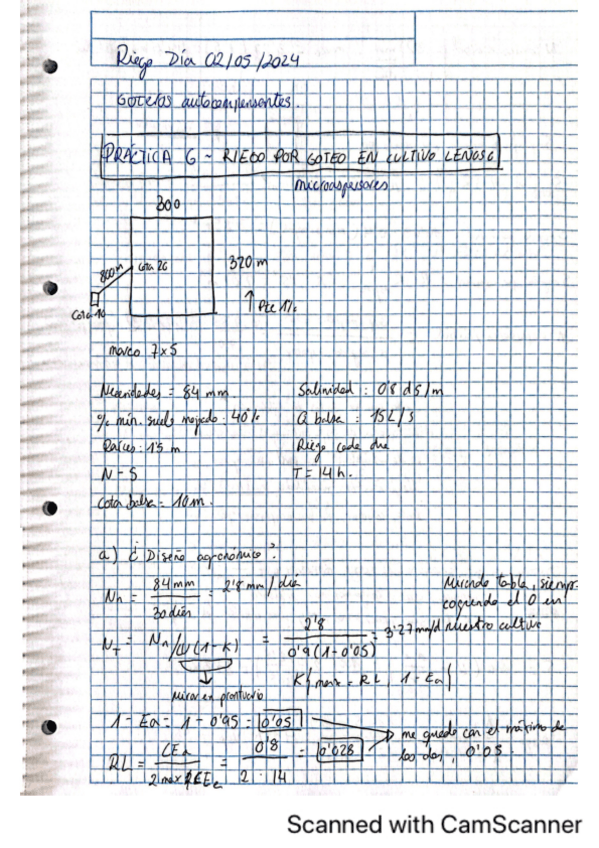 Riego Día 02/05/2024
Goteros autocompensantes.
PRÁCTICA 6 - RIEGO POR GOTEO EN CULTIVO LEÑOSO
microaspersores
300
800m
Cota 26
320 m
Cota 10
↑ Pte 1%
marco 7x5
Necesidades = 84 mm.
Salinidad : 0'8 dS/m
% mín. suelo mojado : 40%
Q balsa : 15L/s
Raíces : 1'5 m
Riego cada día
N-S
T = 14 h.
Cota balsa = 10m.
a) ¿Diseño agronómico?
Nn = 84mm / 30 días = 2'8 mm/día
Mirando tabla, siempre
cogiendo el 0 en
nuestro cultivo
NT = Nn/U(1-K) = 2'8 / 0'9(1-0'05) = 3'27 mm/d
K{max = RL, 1-Ea}
Mirar en prontuario
1-Ea = 1-0'95 = 0'05
me quedo con el máximo de
los dos, 0'05.
RL = CEa / 2 max CEe = 0'8 / 2·14 = 0'028
Scanned with CamScanner